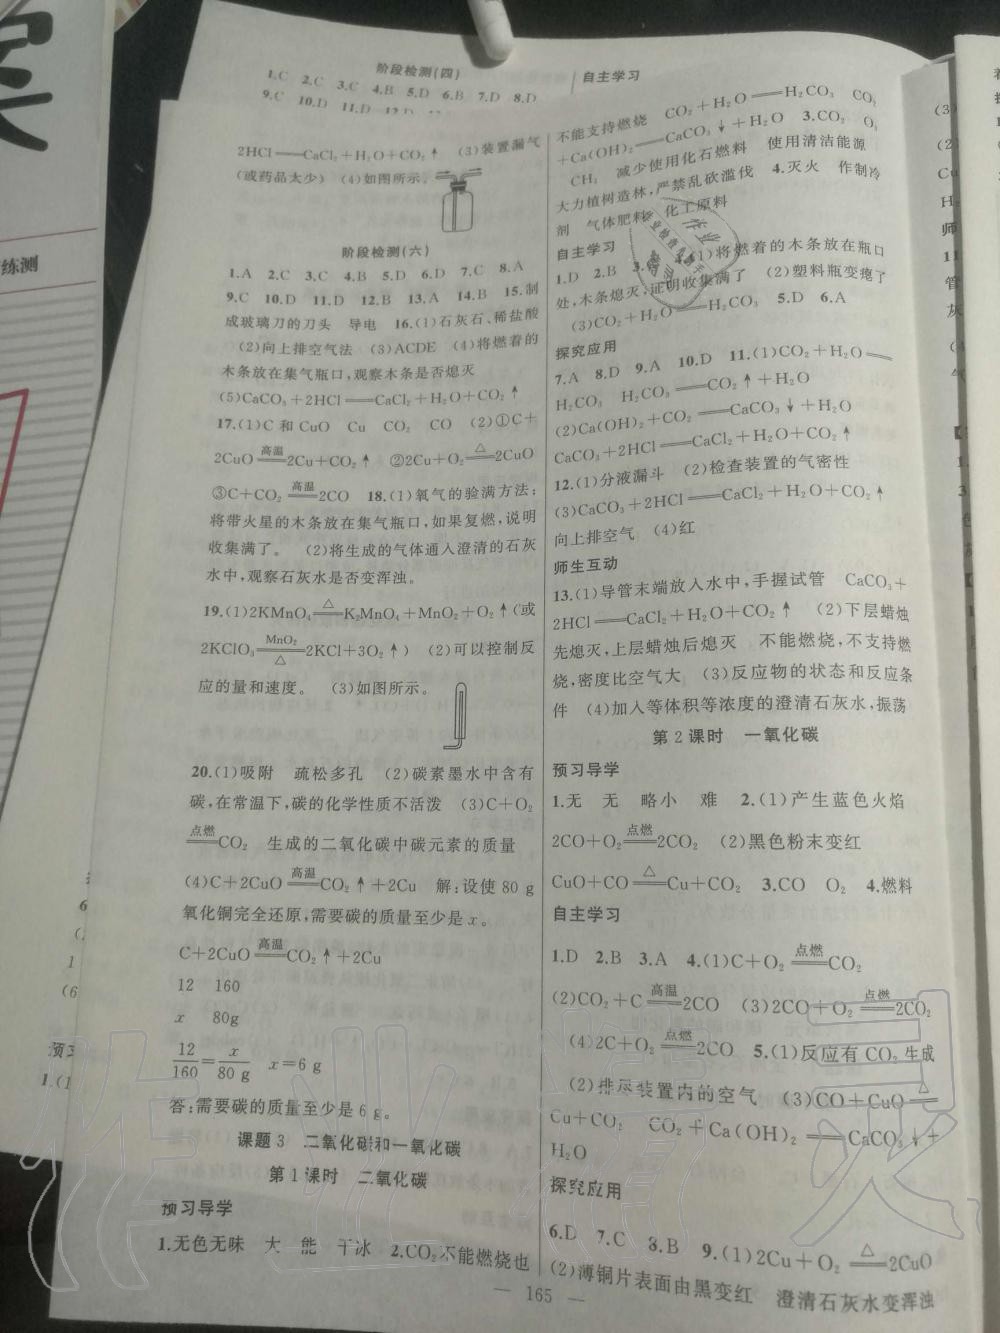 阶段检测(四)
1.C 2.C 3.C 4.B 5.D 6.B 7.D 8.D
9.C 10.D 11.D 12.D
2HCl══CaCl₂+H₂O+CO₂↑ (3)装置漏气
(或药品太少) (4)如图所示。
阶段检测(六)
1.A 2.C 3.C 4.B 5.D 6.D 7.C 8.A
9.C 10.D 11.D 12.B 13.A 14.B 15.制
成玻璃刀的刀头 导电 16.(1)石灰石、稀盐酸
(2)向上排空气法 (3)ACDE (4)将燃着的
木条放在集气瓶口,观察木条是否熄灭
(5)CaCO₃+2HCl══CaCl₂+H₂O+CO₂↑
17.(1)C 和 CuO Cu CO₂ CO (2)①C+
2CuO 高温══ 2Cu+CO₂↑ ②2Cu+O₂ △══ 2CuO
③C+CO₂ 高温══ 2CO 18.(1)氧气的验满方法:
将带火星的木条放在集气瓶口,如果复燃,说明
收集满了。 (2)将生成的气体通入澄清的石灰
水中,观察石灰水是否变浑浊。
19.(1)2KMnO₄ △══ K₂MnO₄+MnO₂+O₂↑(或
2KClO₃ MnO₂══△ 2KCl+3O₂↑) (2)可以控制反
应的量和速度。 (3)如图所示。
20.(1)吸附 疏松多孔 (2)碳素墨水中含有
碳,在常温下,碳的化学性质不活泼 (3)C+O₂
点燃══ CO₂ 生成的二氧化碳中碳元素的质量
(4)C+2CuO 高温══ CO₂↑+2Cu 解:设使 80 g
氧化铜完全还原,需要碳的质量至少是 x。
C+2CuO 高温══ CO₂↑+2Cu
12 160
x 80g
12/160=x/80 g x=6 g
答:需要碳的质量至少是 6 g。
课题 3 二氧化碳和一氧化碳
第 1 课时 二氧化碳
预习导学
1.无色无味 大 能 干冰 2.CO₂不能燃烧也
自主学习
不能支持燃烧 CO₂+H₂O══H₂CO₃ CO₂
+Ca(OH)₂══CaCO₃↓+H₂O 3.CO₂ O₃
CH₄ 减少使用化石燃料 使用清洁能源
大力植树造林,严禁乱砍滥伐 4.灭火 作制冷
剂 气体肥料 化工原料
自主学习
1.D 2.B 3. 4.(1)将燃着的木条放在瓶口
处,木条熄灭,证明收集满了 (2)塑料瓶变瘪了
(3)CO₂+H₂O══H₂CO₃ 5.D 6.A
探究应用
7.A 8.D 9.A 10.D 11.(1)CO₂+H₂O══
H₂CO₃ H₂CO₃══CO₂↑+H₂O
(2)Ca(OH)₂+CO₂══CaCO₃↓+H₂O
CaCO₃+2HCl══CaCl₂+H₂O+CO₂↑
12.(1)分液漏斗 (2)检查装置的气密性
(3)CaCO₃+2HCl══CaCl₂+H₂O+CO₂↑
向上排空气 (4)红
师生互动
13.(1)导管末端放入水中,手握试管 CaCO₃+
2HCl══CaCl₂+H₂O+CO₂↑ (2)下层蜡烛
先熄灭,上层蜡烛后熄灭 不能燃烧,不支持燃
烧,密度比空气大 (3)反应物的状态和反应条
件 (4)加入等体积等浓度的澄清石灰水,振荡
第 2 课时 一氧化碳
预习导学
1.无 无 略小 难 2.(1)产生蓝色火焰
2CO+O₂ 点燃══ 2CO₂ (2)黑色粉末变红
CuO+CO △══ Cu+CO₂ 3.CO O₂ 4.燃料
自主学习
1.D 2.B 3.A 4.(1)C+O₂ 点燃══ CO₂
(2)CO₂+C 高温══ 2CO (3)2CO+O₂ 点燃══ 2CO₂
(4)2C+O₂ 点燃══ 2CO 5.(1)反应有 CO₂ 生成
(2)排尽装置内的空气 (3)CO+CuO △══
Cu+CO₂ CO₂+Ca(OH)₂══CaCO₃↓+
H₂O
探究应用
6.D 7.C 8.B 9.(1)2Cu+O₂ △══ 2CuO
(2)薄铜片表面由黑变红 澄清石灰水变浑浊
— 165 —
练测